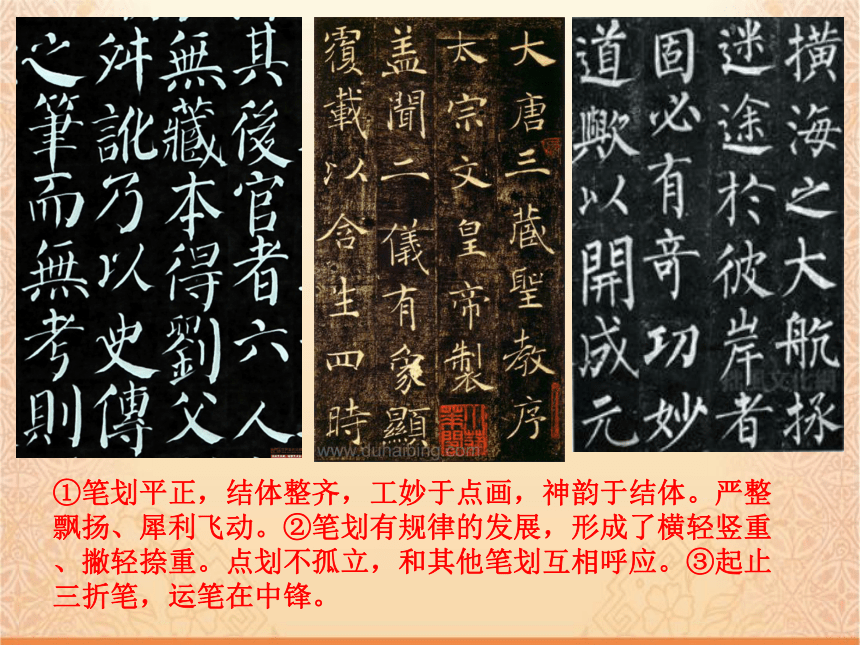 其後官者六人
無藏本得劉父
舛訛乃以史傳
之筆而無考則
大唐三藏聖教序
太宗文皇帝製
盖聞二儀有象顯
覆載以含生四時
www.duhaibing.com
橫海之大航拯
迷途於彼岸者
固必有奇功妙
道歟以開成元
①笔划平正，结体整齐，工妙于点画，神韵于结体。严整
飘扬、犀利飞动。②笔划有规律的发展，形成了横轻竖重
、撇轻捺重。点划不孤立，和其他笔划互相呼应。③起止
三折笔，运笔在中锋。